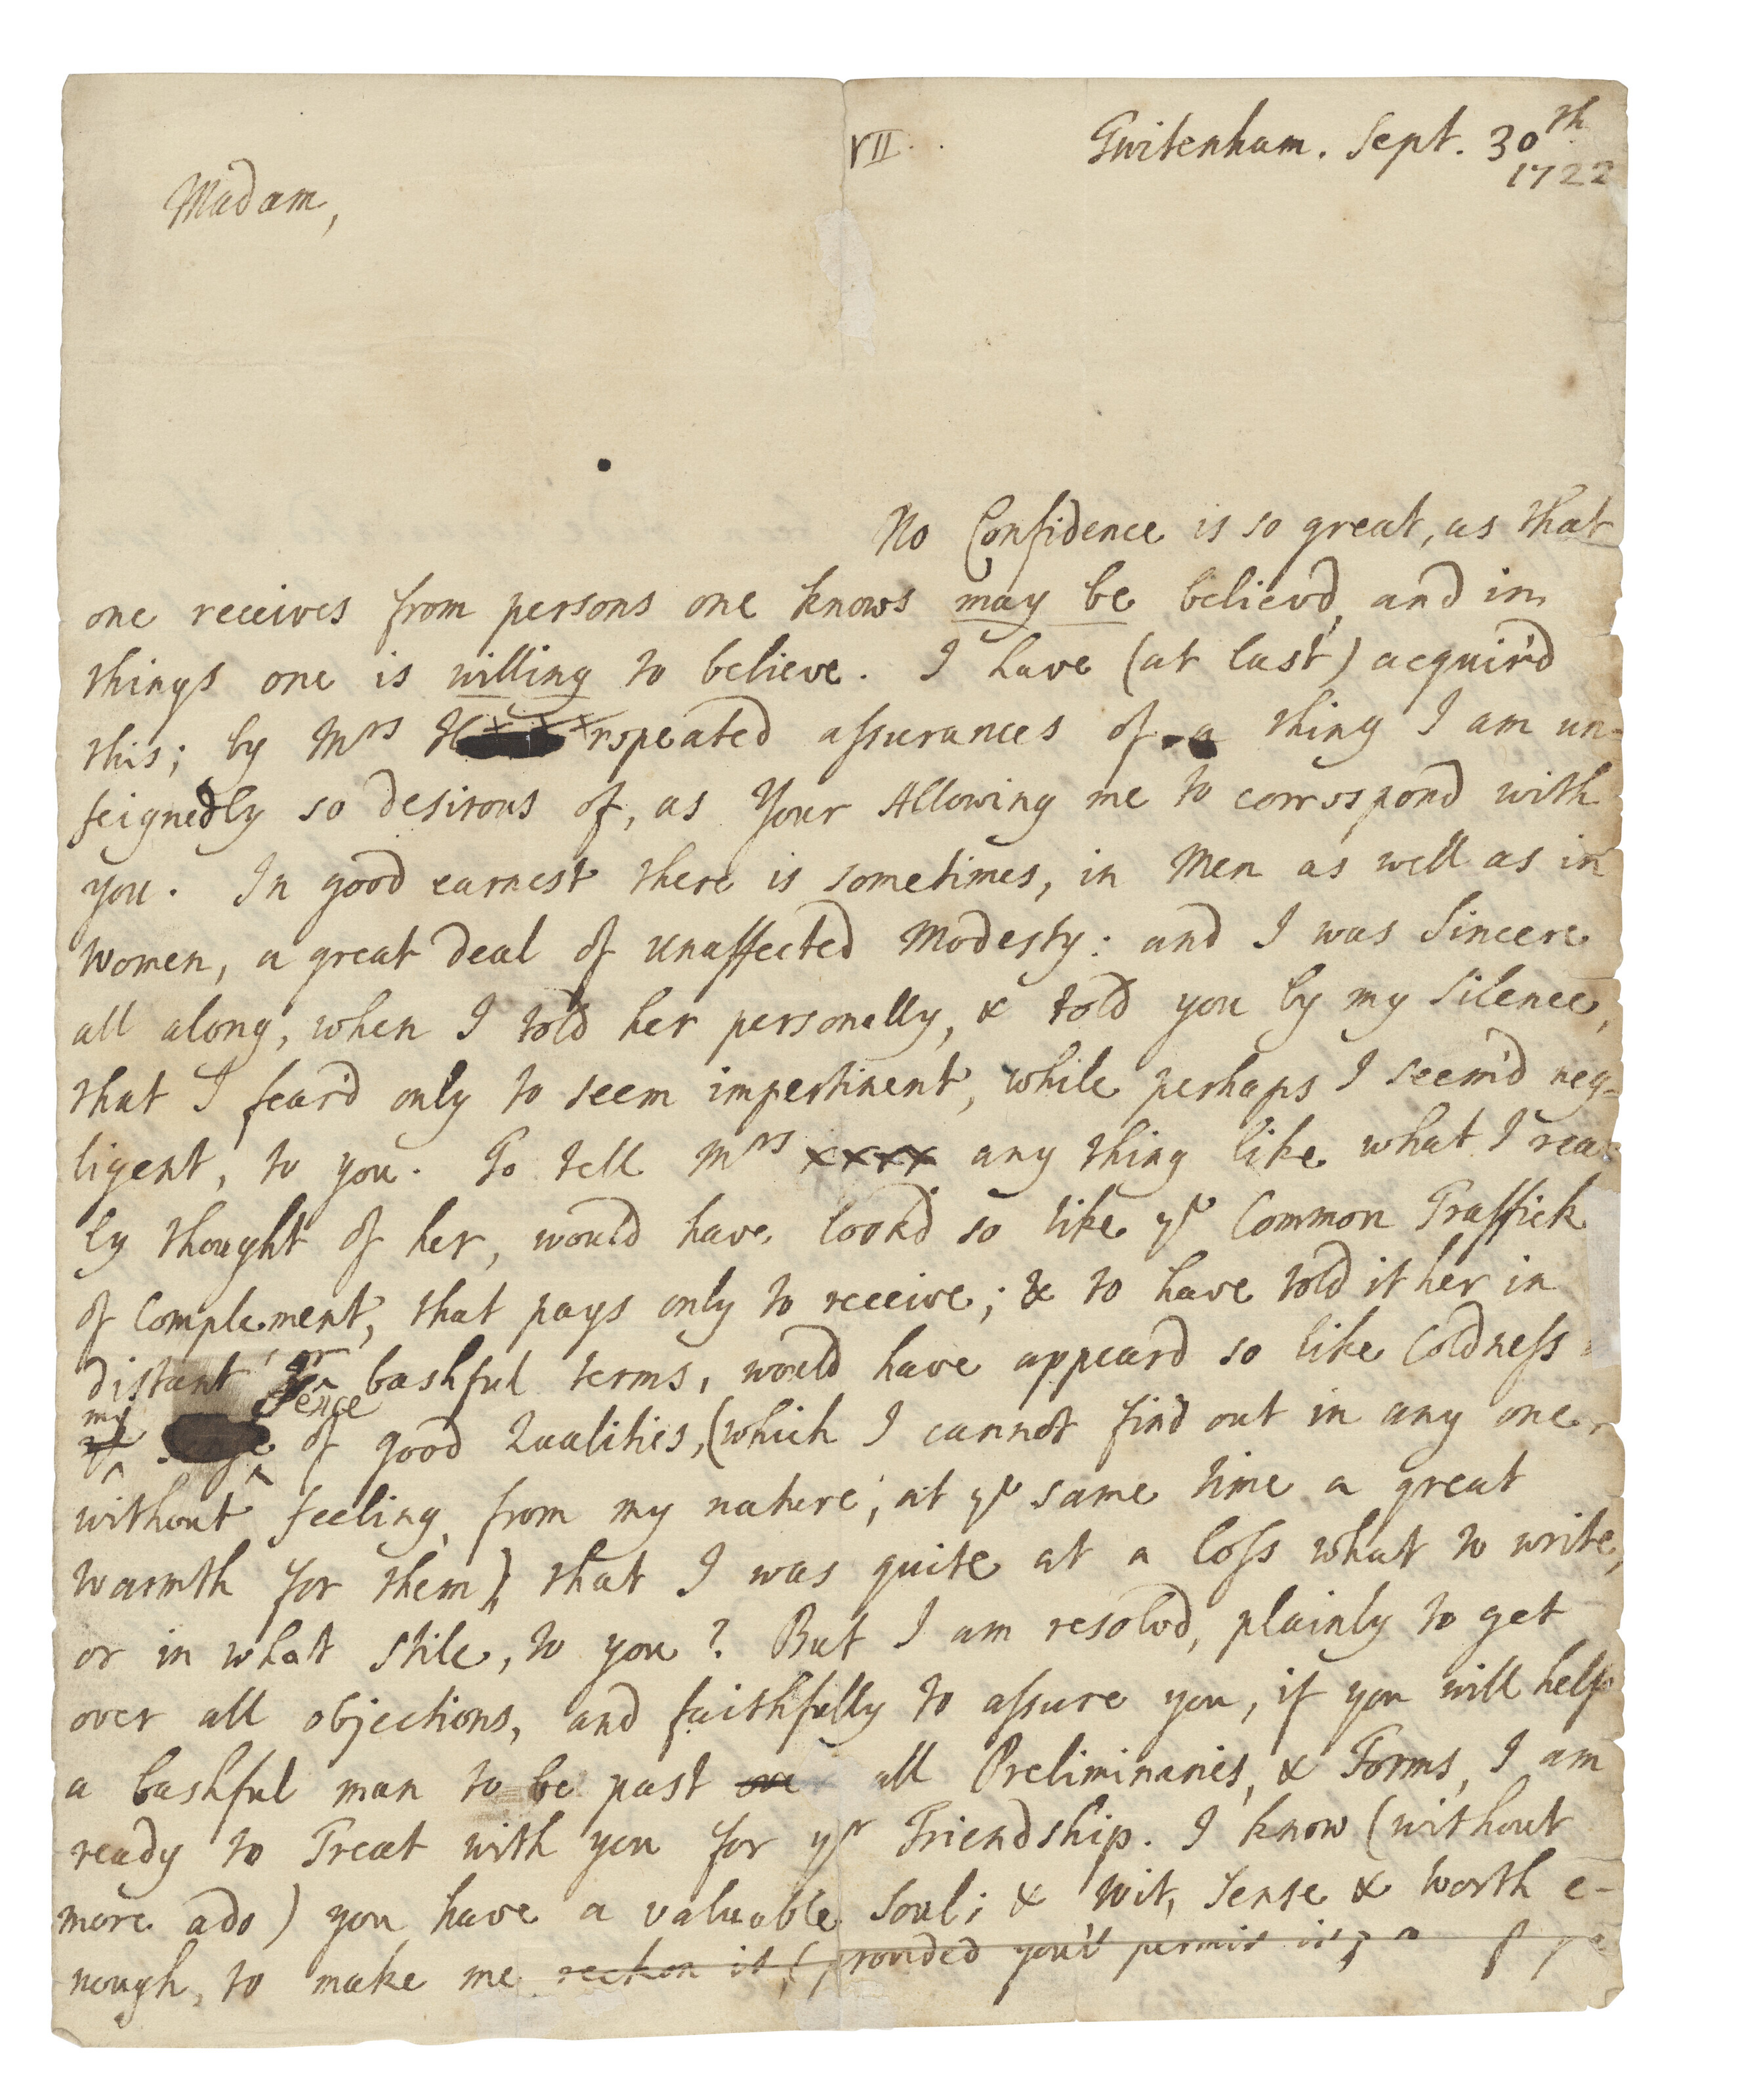 VII.
Twitenham. Sept. 30th
1722
Madam,
No Confidence is so great, as that
one receives from persons one knows may be believd, and in
things one is willing to believe. I have (at last) acquir'd
this; by Mrs H repeated assurances of a thing I am un-
feignedly so desirous of, as Your Allowing me to correspond with
you. In good earnest there is sometimes, in Men as well as in
Women, a great deal of unaffected Modesty: and I was Sincere
all along, when I told her personally, & told you by my Silence,
that I fear'd only to seem impertinent, while perhaps I seem'd neg-
ligent, to you. To tell Mrs xxxx any thing like what I real-
ly thought of her, would have look'd so like ye Common Traffick
of Complement, that pays only to receive; & to have told it her in
distant or bashful terms, would have appeard so like Coldness
my Sense of good Qualities, (which I cannot find out in any one,
without feeling, from my nature, at ye same time a great
warmth for them) that I was quite at a loss what to write,
or in what stile, to you? But I am resolvd, plainly to get
over all objections, and faithfully to assure you, if you will help
a bashful man to be past all Preliminaries, & Forms, I am
ready to Treat with you for yr Friendship. I know (without
more ado) you have a valuable Soul; & Wit, Sense & Worth e-
nough, to make me reckon it, (provided you'll permit it,)